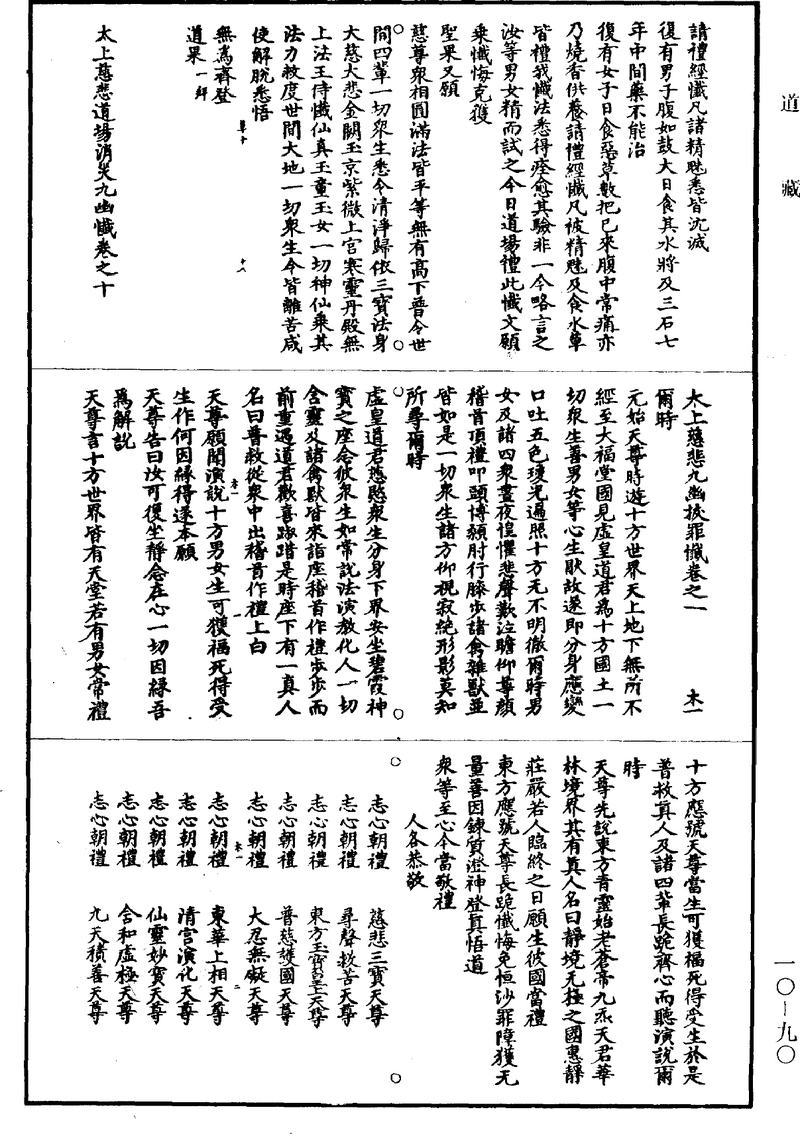 道藏
請禮經懺凡諸精魅悉皆沈滅
復有男子腹如鼓大日食其水將及三石七
年中間藥不能治
復有女子日食惡草數把已來腹中常痛亦
乃燒香供養請禮經懺凡被精魅及食水草
皆禮我懺法悉得痊愈其驗非一今略言之
汝等男女精而試之今日道場禮此懺文願
乘懺悔克獲
聖果又願
慈尊眾相圓滿法皆平等無有高下普令世
間四輩一切眾生悉令清淨歸依三寶法身
大慈大悲金闕玉京紫微上宮寒靈丹殿無
上法王侍懺仙真玉童玉女一切神仙乘其
法力救度世間大地一切眾生令皆離苦咸
使解脫悉悟
無為齊登
道果一拜
太上慈悲道場消災九幽懺卷之十
太上慈悲九幽拔罪懺卷之一
木一
爾時
元始天尊時遊十方世界天上地下無所不
經至大福堂國見虛皇道君為十方國土一
切眾生善男女等心生耽故遂即分身應變
口吐五色瓊光遍照十方无不明徹爾時男
女及諸四眾晝夜惶懼悲聲歎泣瞻仰尊顏
稽首頂禮叩頭博頰肘行膝步諸禽雜獸並
皆如是一切眾生諸方仰視寂絕形影莫知
所尋爾時
虛皇道君慈愍眾生分身下界安坐碧霞神
寶之座念彼眾生如常說法演教化人一切
含靈及諸禽獸皆來詣座稽首作禮步步而
前重遇道君歡喜踊踏是時座下有一真人
名曰普救從眾中出稽首作禮上白
天尊願聞演說十方男女生可獲福死得受
生作何因緣得遂本願
天尊告曰汝可復坐靜念在心一切因緣吾
為解說
天尊言十方世界皆有天堂若有男女常禮
十方應號天尊當生可獲福死得受生於是
普救真人及諸四輩長跪齊心而聽演說爾
時
天尊先說東方青靈始老蒼帝九炁天君華
林境界其有真人名曰靜境无極之國惠靜
莊嚴若人臨終之日願生彼國當禮
東方應號天尊長跪懺悔免恒沙罪障獲无
量善因鍊質澄神登真悟道
眾等至心今當敬禮
人各恭敬
志心朝禮 慈悲三寶天尊
志心朝禮 尋聲救苦天尊
志心朝禮 東方玉寶皇上天尊
志心朝禮 普慈護國天尊
志心朝禮 大忍無礙天尊
志心朝禮 東華上相天尊
志心朝禮 清宮演化天尊
志心朝禮 仙靈妙寶天尊
志心朝禮 合和虛極天尊
志心朝禮 九天積善天尊
一〇-九〇